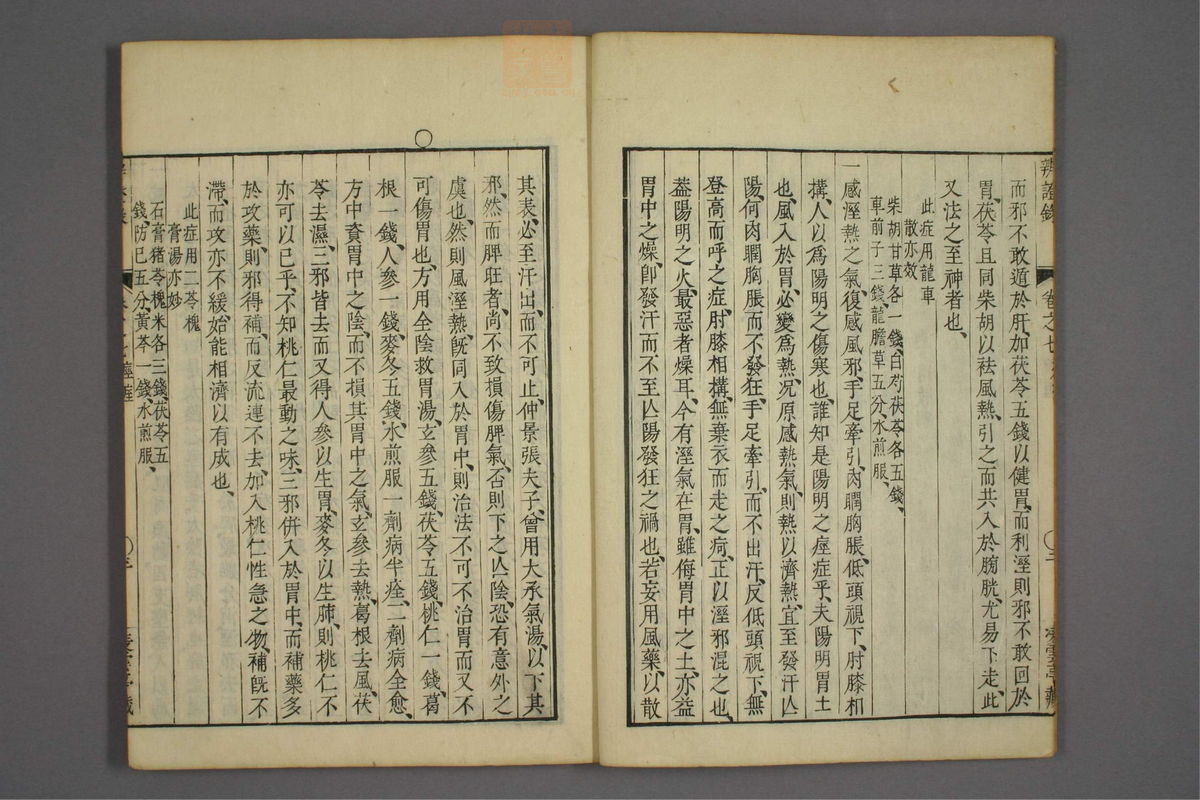 辨證錄
卷之七
而邪不敢遁於肝加茯苓五錢以健胃而利溼則邪不敢回於
胃、茯苓且同柴胡以袪風熱、引之而共入於膀胱、尤易下走、此
又法之至神者也、
此症用龍車
散亦效
柴胡甘草各一錢、白芍茯苓各五錢、
車前子三錢、龍膽草五分、水煎服、
一感溼熱之氣、復感風邪、手足牽引、肉瞤胸脹、低頭視下、肘膝相
搆、人以爲陽明之傷寒也、誰知是陽明之痙症乎、夫陽明胃土
也、風入於胃、必變爲熱、况原感熱氣、則熱以濟熱、宜至發汗亾
陽、何肉瞤胸脹而不發狂、手足牽引、而不出汗、反低頭視下、無
登高而呼之症、肘膝相搆、無棄衣而走之疴、正以溼邪混之也、
葢陽明之火、最惡者燥耳、今有溼氣在胃、雖侮胃中之土、亦益
胃中之燥、卽發汗而不至亾陽發狂之禍也、若妄用風藥、以散
其表、必至汗出、而不可止、仲景張夫子、曾用大承氣湯、以下其
邪、然而脾旺者、尚不致損傷脾氣、否則下之亾陰、恐有意外之
虞也、然則風溼熱、旣同入於胃中、則治法不可不治胃、而又不
可傷胃也、方用全陰救胃湯、玄參五錢茯苓五錢、桃仁一錢、葛
根一錢、人參一錢、麥冬五錢、水煎服一劑病半痊、二劑病全愈、
方中資胃中之陰、而不損其胃中之氣、玄參去熱、葛根去風、茯
苓去濕、三邪皆去而又得人參以生胃、麥冬以生肺、則桃仁不
亦可以已乎、不知桃仁最動之味、三邪併入於胃中、而補藥多
於攻藥、則邪得補、而反流連不去、加入桃仁性急之物、補旣不
滯、而攻亦不緩、始能相濟以有成也、
此症用二苓槐
膏湯亦妙
石膏猪苓槐米各三錢、茯苓五
錢、防已五分、黃芩一錢、水煎服、